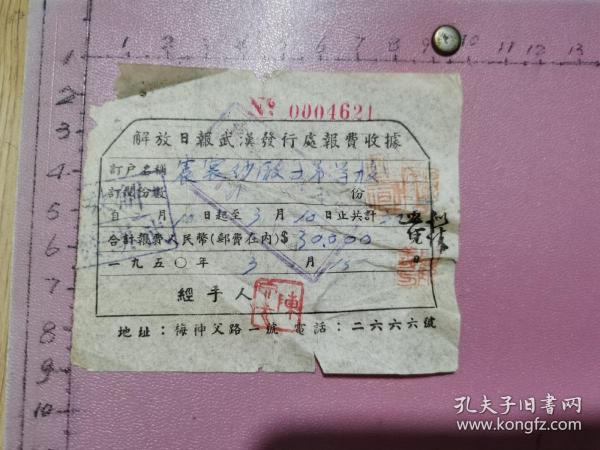 1 2 3 4 5 6 7 8 9 10 11 12 13
1
2
3
4
5
6
7
8
9
10
№ 0004621
解放日報武漢發行處報費收據
訂户名稱 震寰紗廠
訂閱份數 份
自 月 10 日起至 3 月 10 日止共計
合計報費人民幣(郵費在內)$ 30,000
一九五〇年 3 月 15 日
經手人
陳
地址：梅神父路一號 電話：二六六六號
孔夫子旧书网
www.kongfz.com